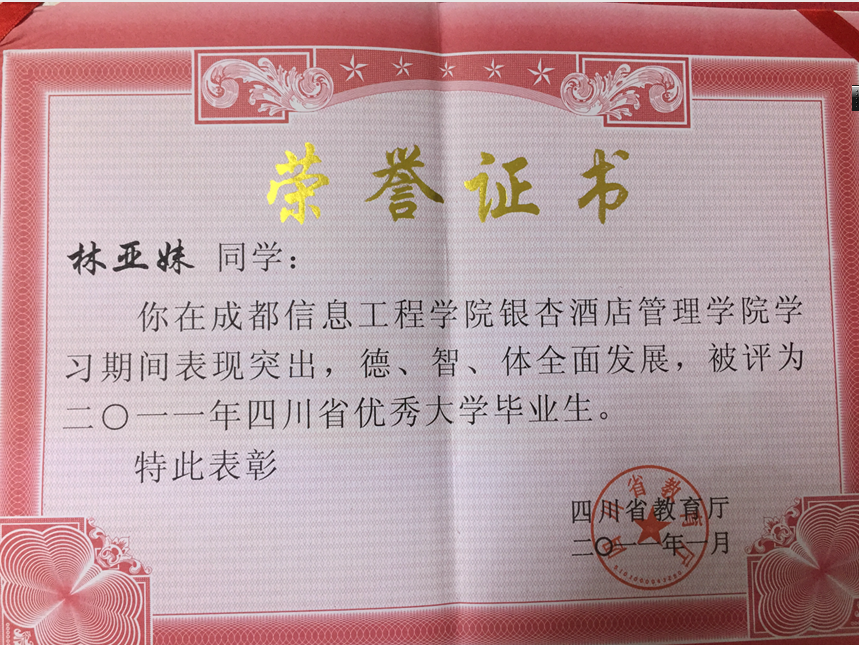 荣誉证书
林亚妹 同学：
你在成都信息工程学院银杏酒店管理学院学
习期间表现突出，德、智、体全面发展，被评为
二〇一一年四川省优秀大学毕业生。
特此表彰
四川省教育厅
二〇一一年一月
四川省教育厅